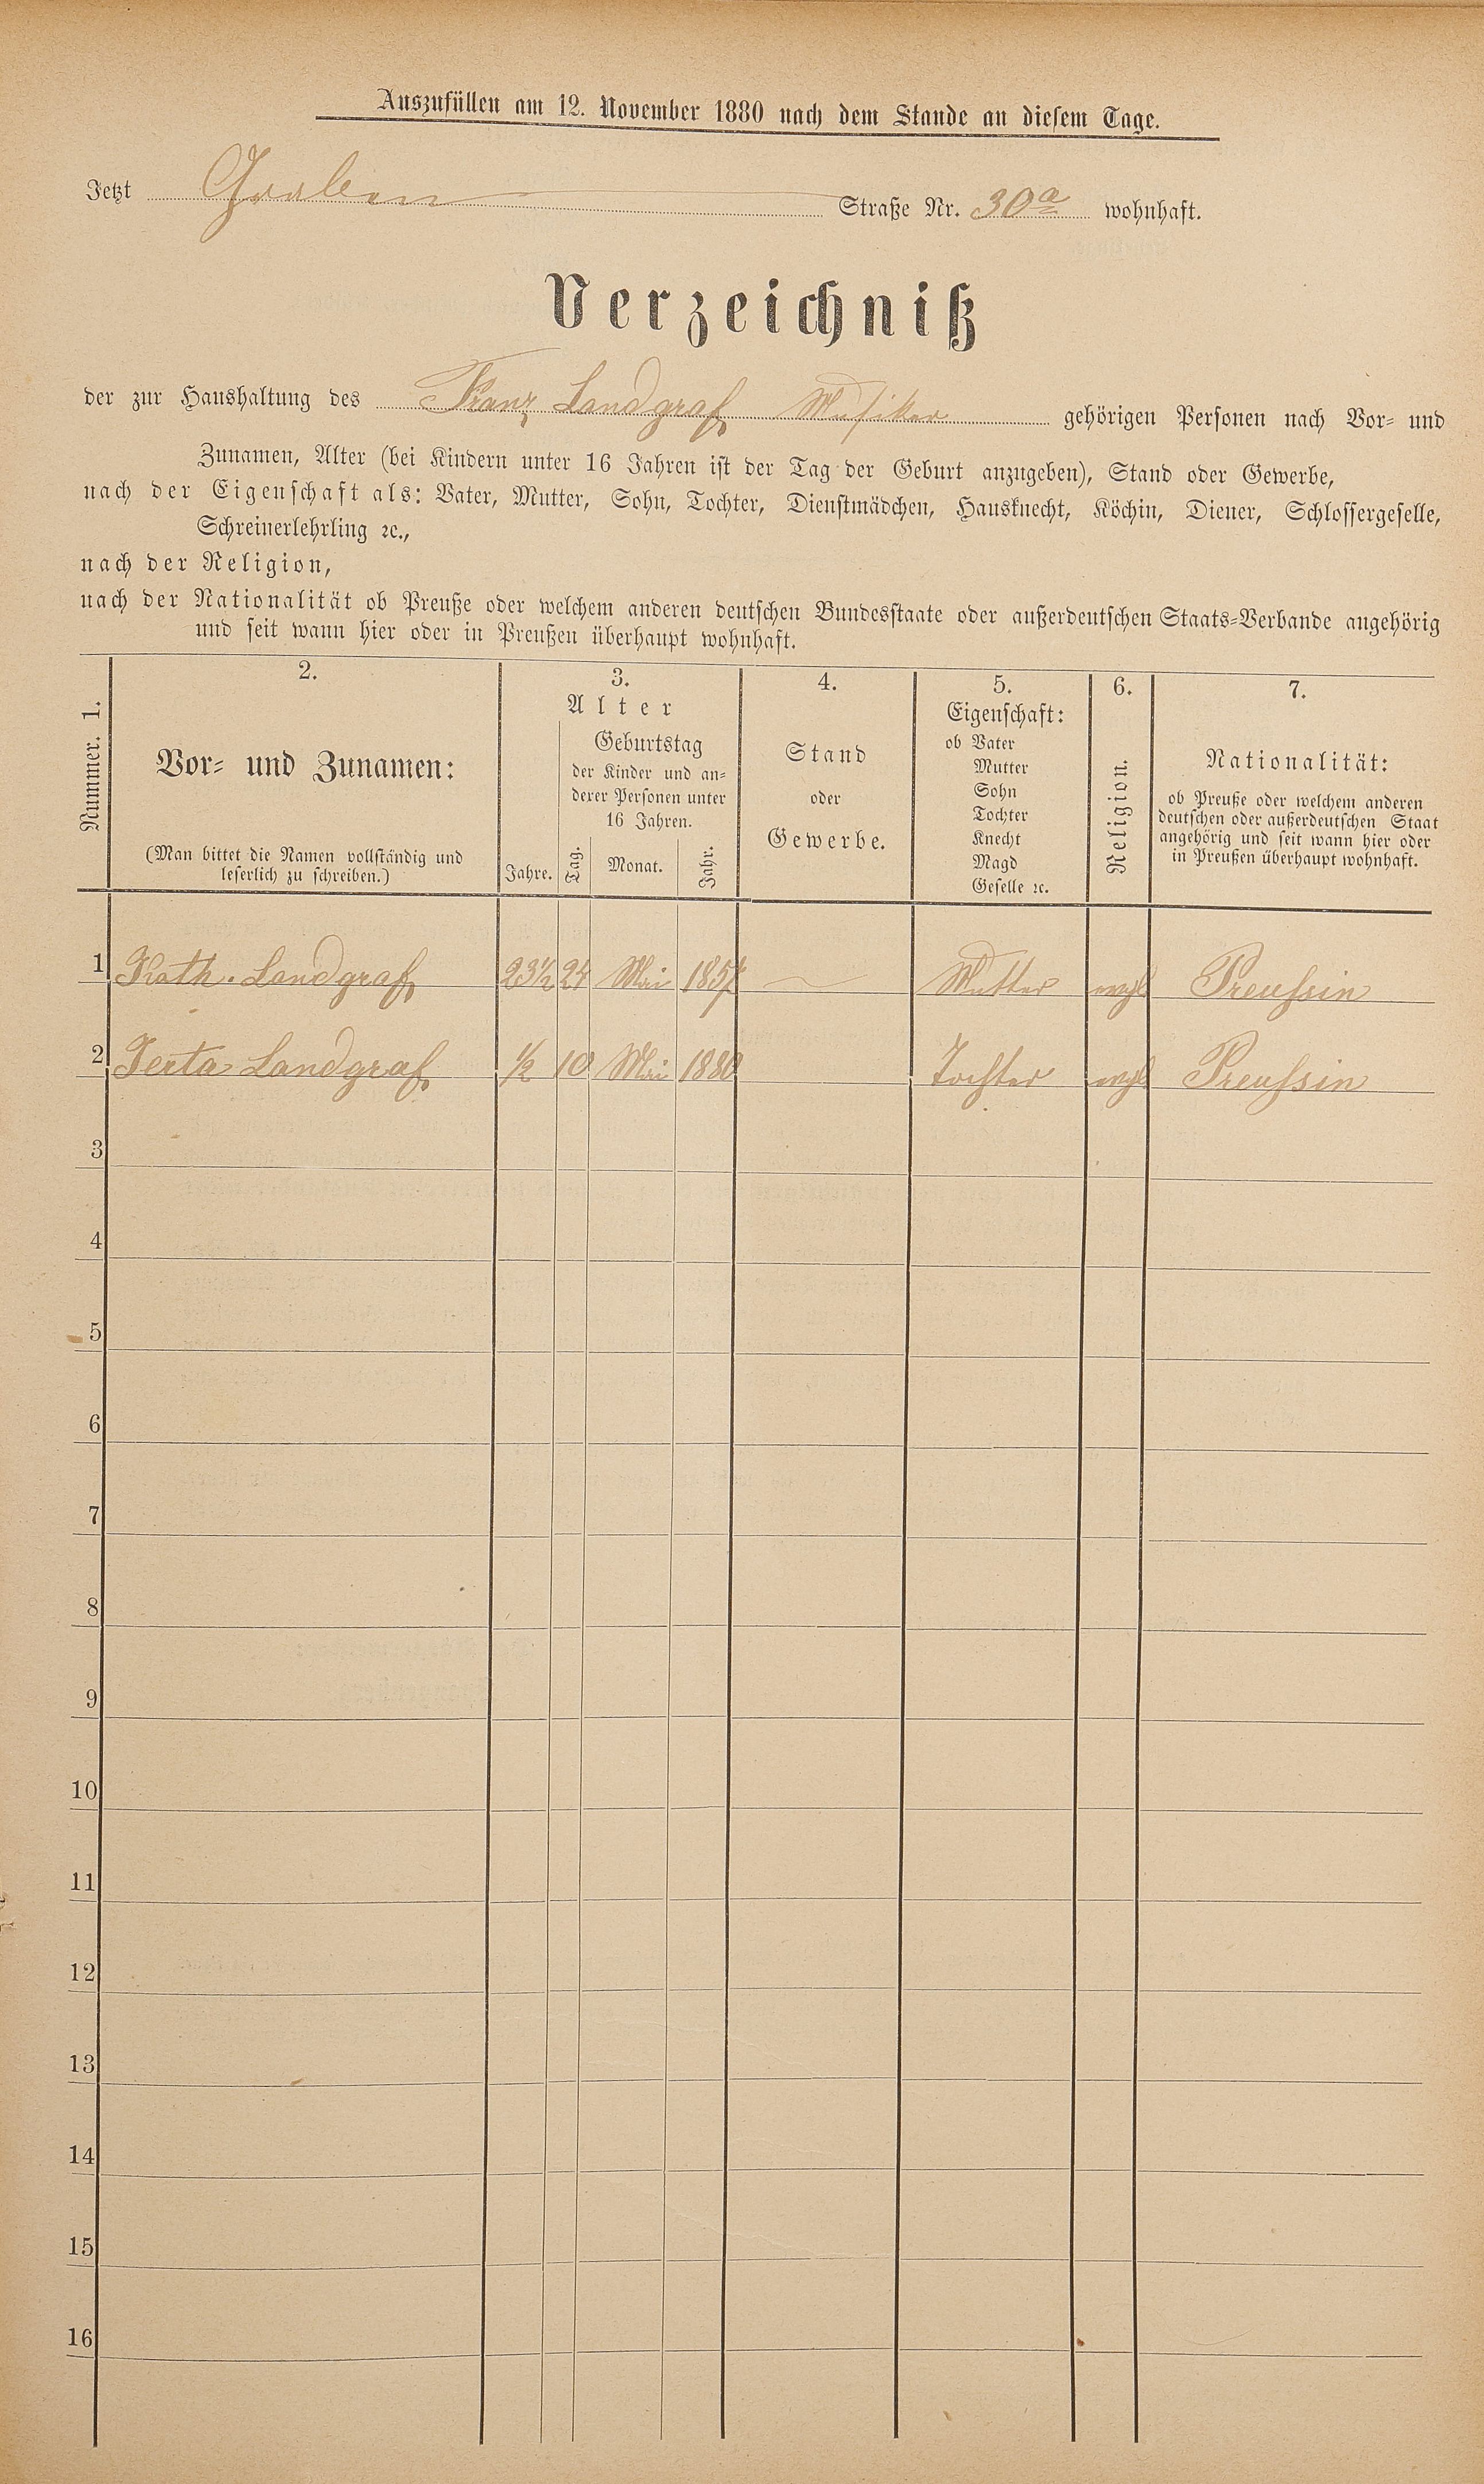 Auszufüllen am 12. November 1880 nach dem Stande an diesem Tage.
Jetzt Graben Straße Nr. 30a wohnhaft.
Verzeichniß
der zur Haushaltung des Franz Landgraf Musiker gehörigen Personen nach Vor- und
Zunamen, Alter (bei Kindern unter 16 Jahren ist der Tag der Geburt anzugeben), Stand oder Gewerbe,
nach der Eigenschaft als: Vater, Mutter, Sohn, Tochter, Dienstmädchen, Hausknecht, Köchin, Diener, Schlossergeselle,
Schreinerlehrling ꝛc.,
nach der Religion,
nach der Nationalität ob Preuße oder welchem anderen deutschen Bundesstaate oder außerdeutschen Staats-Verbande angehörig
und seit wann hier oder in Preußen überhaupt wohnhaft.
Nummer. 1.
2.
Vor- und Zunamen:
(Man bittet die Namen vollständig und
leserlich zu schreiben.)
3.
Alter
Geburtstag
der Kinder und an-
derer Personen unter
16 Jahren.
Jahre. Tag. Monat. Jahr.
4.
Stand
oder
Gewerbe.
5.
Eigenschaft:
ob Vater
Mutter
Sohn
Tochter
Knecht
Magd
Geselle ꝛc.
6.
Religion.
7.
Nationalität:
ob Preuße oder welchem anderen
deutschen oder außerdeutschen Staat
angehörig und seit wann hier oder
in Preußen überhaupt wohnhaft.
1 Kath. Landgraf 23½ 24 Mai 1857 — Mutter evgl Preussin
2 Landgraf ½ 10 Mai 1880 Tochter evgl Preussin
3
4
5
6
7
8
9
10
11
12
13
14
15
16